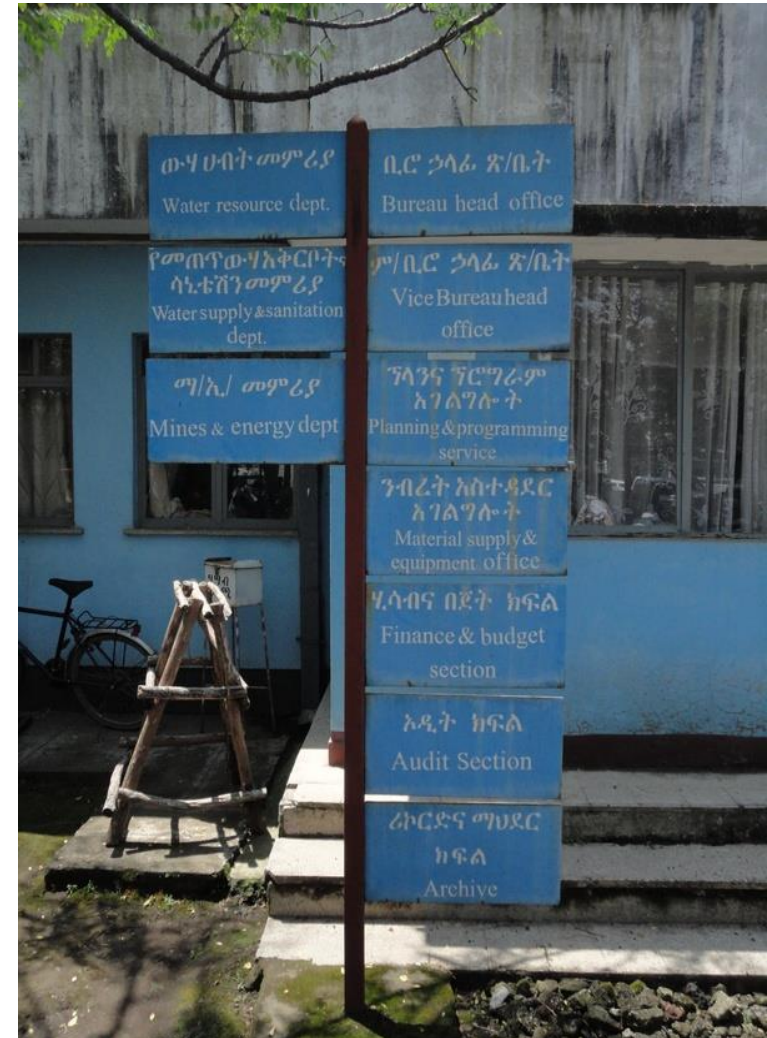 ውሃ ሀብት መምሪያ
Water resource dept.
የመጠጥ ውሃ አቅርቦትና
ሳኒቴሽን መምሪያ
Water supply & sanitation
dept.
ማ/ኢ/ መምሪያ
Mines & energy dept
ቢሮ ኃላፊ ጽ/ቤት
Bureau head office
ም/ቢሮ ኃላፊ ጽ/ቤት
Vice Bureau head
office
ፕላንና ፕሮግራም
አገልግሎት
Planning & programming
service
ንብረት አስተዳደር
አገልግሎት
Material supply &
equipment office
ሂሳብና በጀት ክፍል
Finance & budget
section
ኦዲት ክፍል
Audit Section
ሪኮርድና ማህደር
ክፍል
Archive